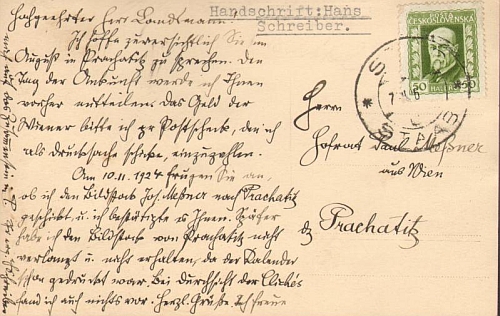 Handschrift: Hans
Schreiber.
Hochgeehrter Herr Landsmann!
Ich hoffe zuversichtlich Sie im
August in Prachatitz zu sprechen. Den
Tag der Ankunft werde ich Ihnen
vorher mitteilen. Das Geld der
Wiener bitte ich zr Postscheck, den ich
als Drucksache schicke, einzuzahlen.
Am 10.11.1924 frugen Sie an,
ob ich den Bildstock Joh. Meßner nach Prachatitz
geschickt u. ich bestätigte es Ihnen. Später
habe ich den Bildstock von Prachatitz nicht
verlangt u. nicht erhalten, da der Kalender
schon gedruckt war. Bei Durchsicht der Clichés
fand ich auch nichts vor. Herzl. Grüße. Ich freue
mich auf das Zusammensein in P. Ihr erg. Schreiber
ČESKOSLOVENSKÁ
50 HALÉŘŮ 50
Herrn
Hofrat Paul Meßner
aus Wien
dz Prachatitz